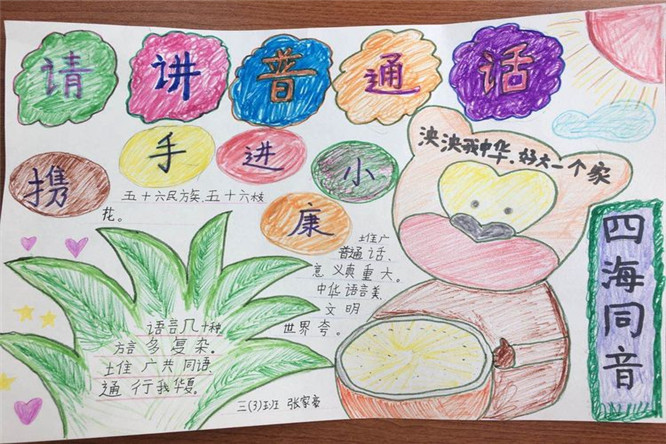 请讲普通话
携手进小康
泱泱我中华，好大一个家
五十六民族，五十六枝
花。
推广
普通话，
意义真重大。
中华语言美，
文明
世界夸。
四海同音
语言几十种，
方言多复杂。
推广共同语，
通行我华夏。
三(3)班 张家豪